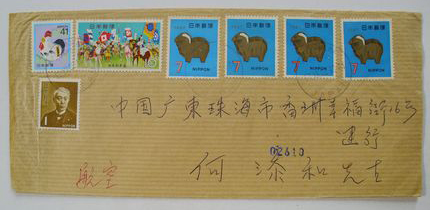 日本郵便
41
日本郵便
NIPPON
日本郵便
7
NIPPON
日本郵便
7
NIPPON
日本郵便
7
NIPPON
日本郵便
7
NIPPON
中国广東珠海市香洲幸福路16号
建行
02610
何添和先生
航空